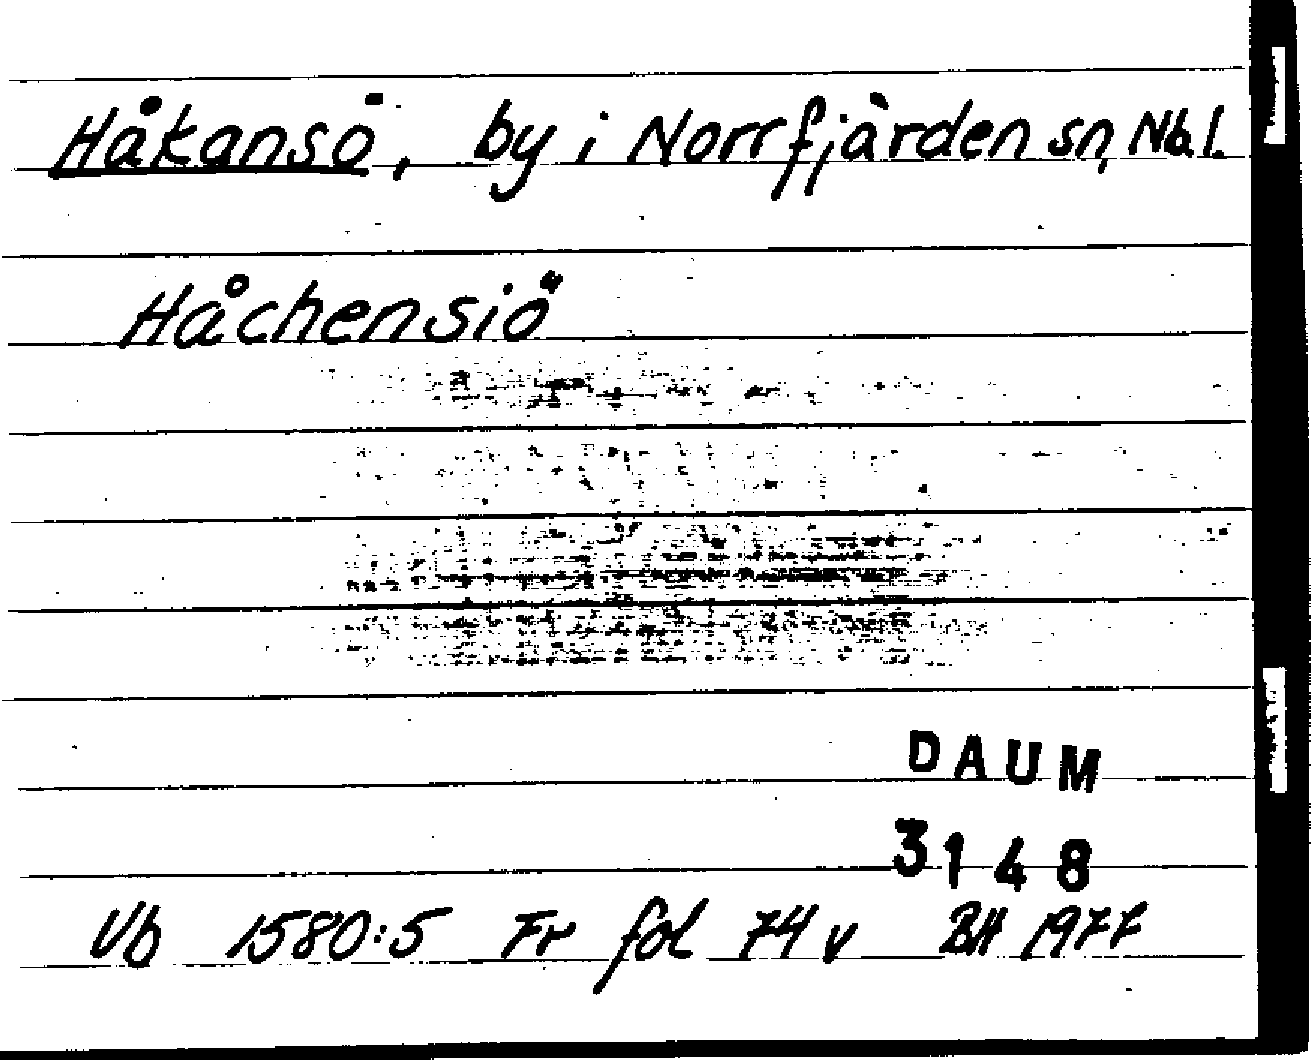 Håkansö, by i Norrfjärden sn, Nb.l.
Håchensiö
DAUM
3148
Vb 1580:5 Fr fol 74 v BH 1977